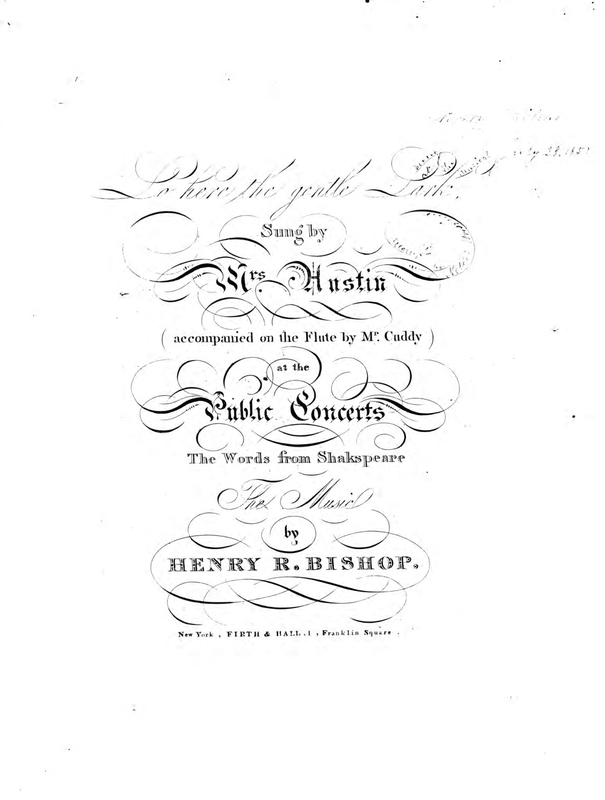 Lo here the gentle Lark,
Sung by
Mrs Austin
( accompanied on the Flute by Mr. Cuddy )
at the
Public Concerts
The Words from Shakspeare
The Music
by
HENRY R. BISHOP.
New York, FIRTH & HALL, 1, Franklin Square.